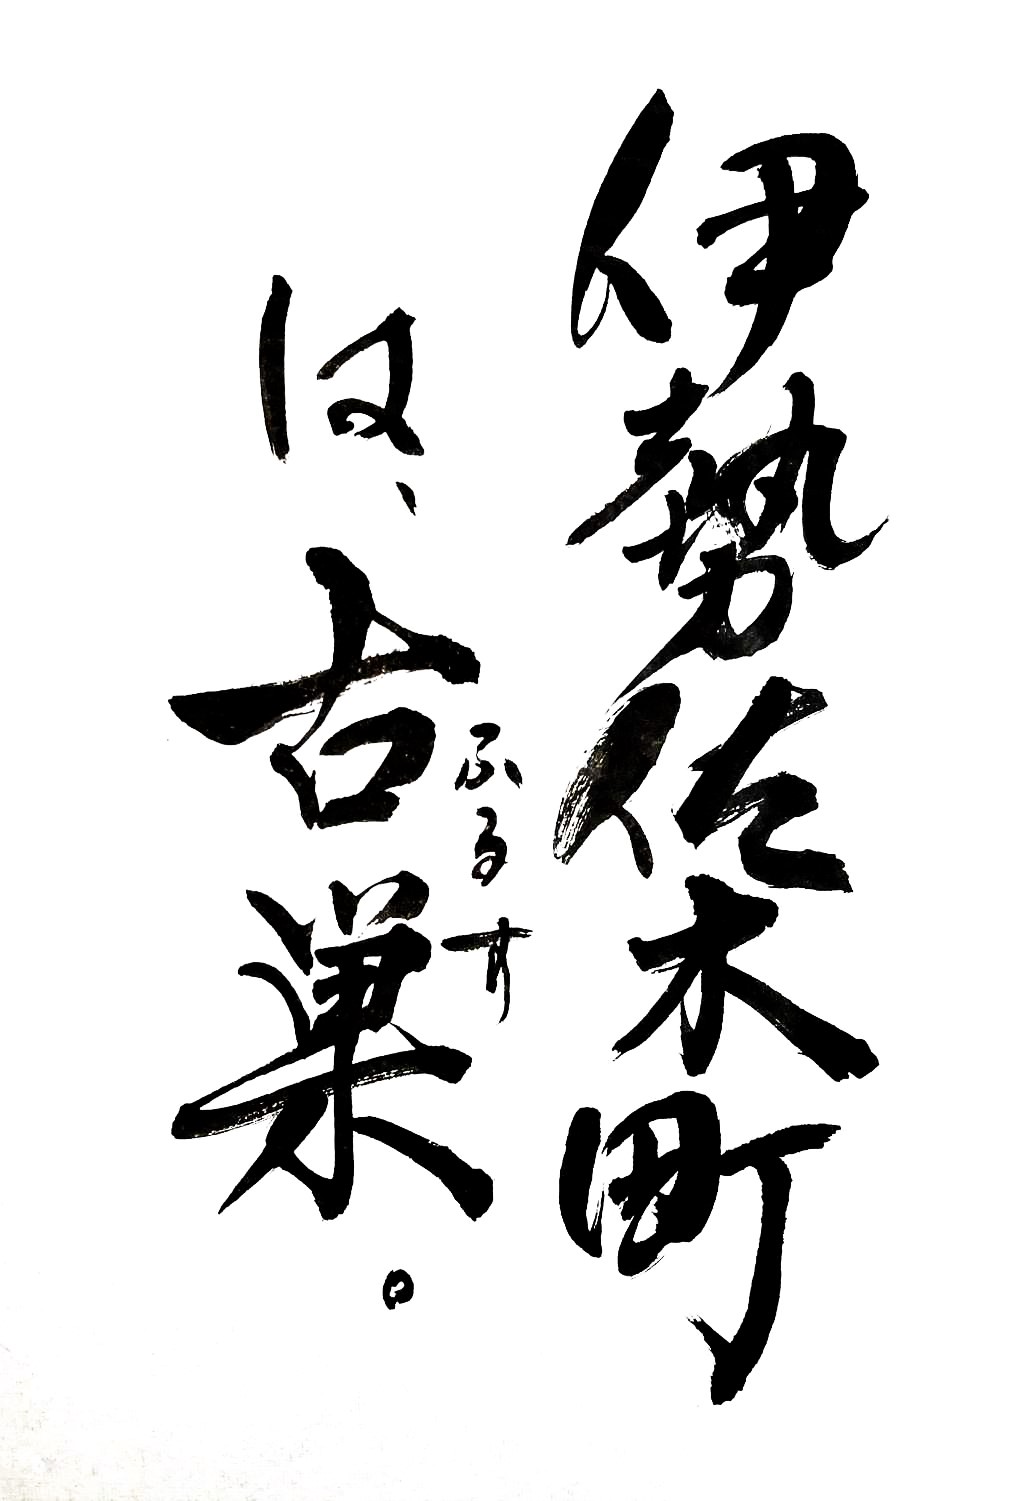 伊勢佐木町
は、古巣。
ふるす